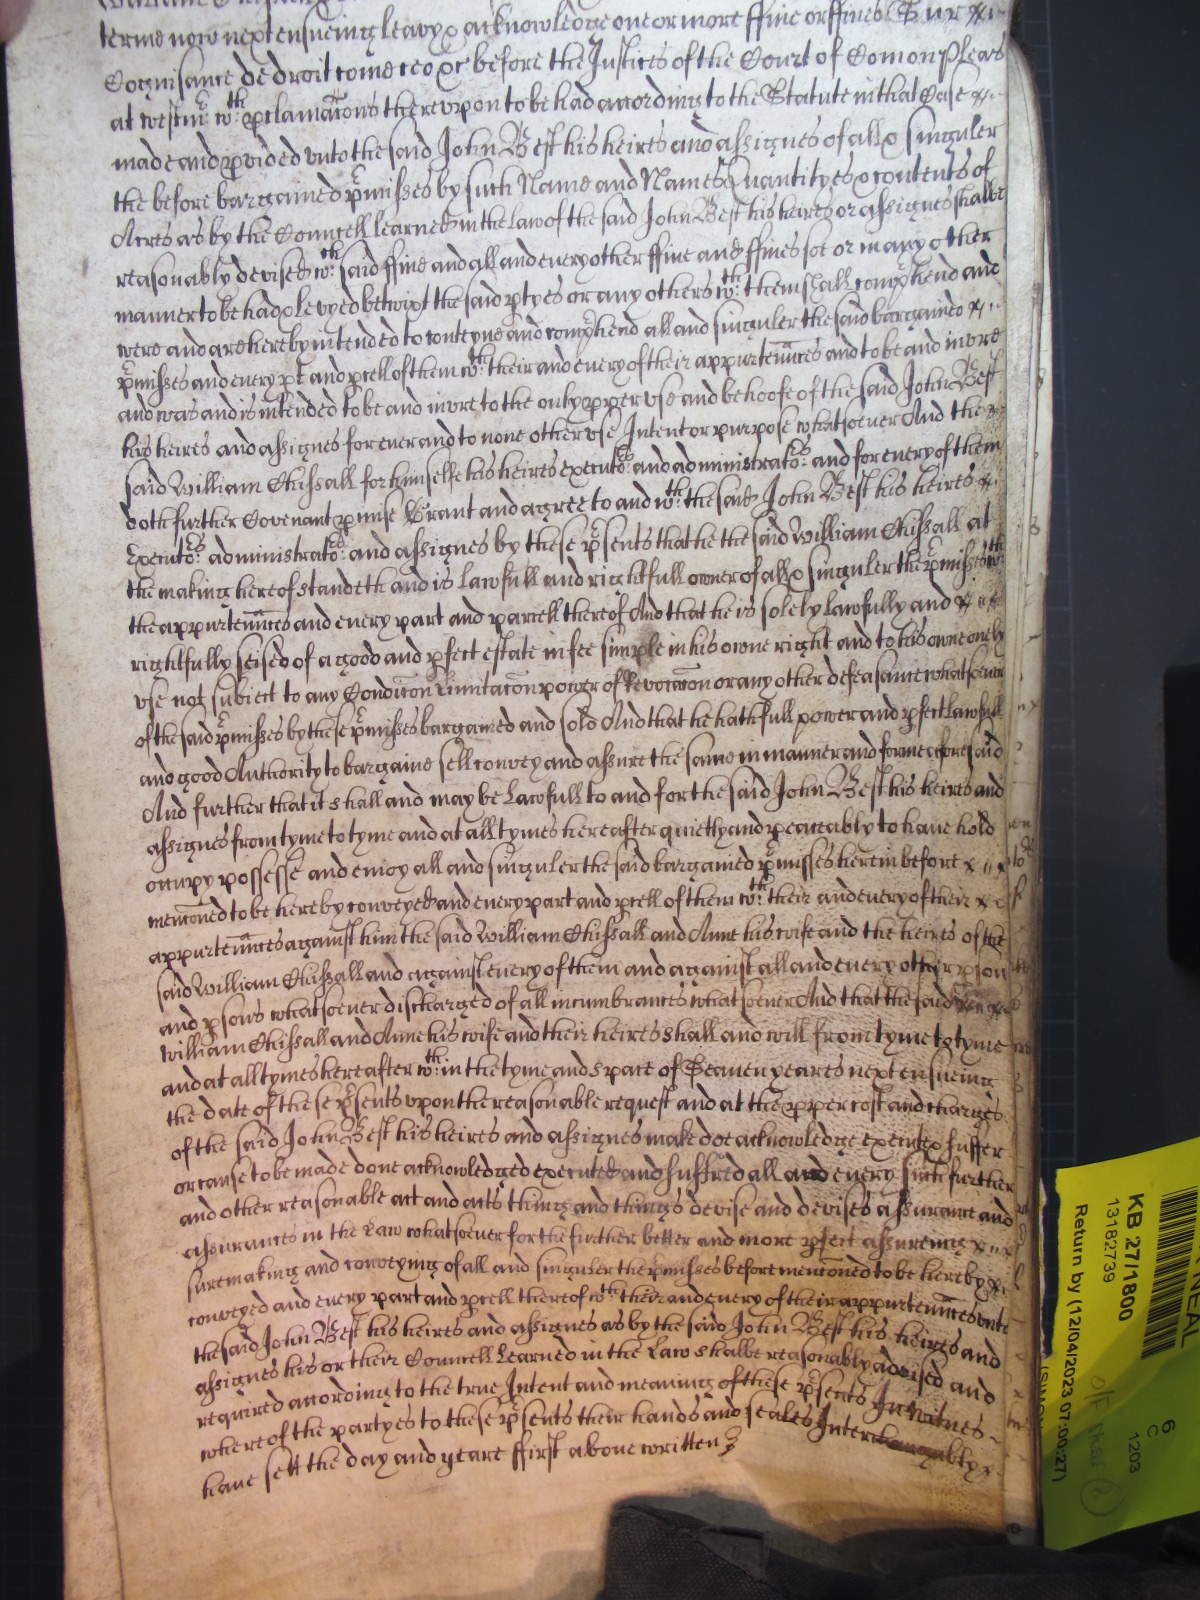 terme now next ensueing leavy & acknowledge one or more ffine or ffines Sur
Cognisance de droit come ceo &c before the Justices of the Court of Comon Pleas
at westmr: wth: pclamacons thereupon to be had according to the Statute in that Case
made and pvided unto the said John Best his heires and assignes of all & singuler
the before bargained pmisses by such Name and Names Quantityes & contents of
Acres as by the Councell learned in the law of the said John Best his heires or assignes shalbe
reasonably devised wth: said ffine and all and every other ffine and ffines soe or in any other
manner to be had & levyed betwixt the said ptyes or any others wth: them shall comphend and
were and are hereby intended to conteyne and comphend all and singuler the said bargained
pmisses and every pt and pcell of them wth: their and every of their appurtennces and to be and inure
and was and is intended to be and inure to the only pper use and behoofe of the said John Best
his heires and assignes for ever and to none other use Intent or purpose whatsoever And the
said William Chissall for himselfe his heires executors: and administrators: and for every of them
doth further Covenant pmise Grant and agree to and wth: the said John Best his heires
Executors: administrators: and assignes by these psents that he the said William Chissall at
the making hereof standeth and is lawfull and rightfull owner of all & singuler the pmisses wth
the appurtennces and every part and parcell thereof And that he is solely lawfully and
rightfully seised of a good and pfect estate in fee simple in his owne right and to his owne onely
use not subiect to any Condicon Limitacon power of Revocacon or any other defeasance whatsoever
of the said pmisses by these pmisses bargained and sold And that he hath full power and pfect lawfull
and good Authority to bargaine sell convey and assure the same in manner and forme aforesaid
And further that it shall and may be Lawfull to and for the said John Best his heires and
assignes from tyme to tyme and at all tymes hereafter quietly and peaceably to have hold
occupy possesse and enioy all and singuler the said bargained pmisses herein before
menconed to be hereby conveyed and every part and pcell of them wth: their and every of their
appurtennces against him the said William Chissall and Anne his wife and the heires of the
said William Chissall and against every of them and against all and every other pson
and psons whatsoever discharged of all incumbrances whatsoever And that the said
William Chissall and Anne his wife and their heires shall and will from tyme to tyme
and at all tymes hereafter wth: in the tyme and space of Seaven yeares next ensueing
the date of these psents upon the reasonable request and at the pper cost and charges
of the said John Best his heires and assignes make doe acknowledge execute & suffer
or cause to be made done acknowledged executed and suffred all and every such further
and other reasonable act and acts thing and things devise and devises assurance and
assurances in the Law whatsoever for the further better and more pfect assureing
suremaking and conveying of all and singuler the pmisses before menconed to be hereby
conveyed and every part and pcell thereof wth: their and every of their appurtennces unto
the said John Best his heires and assignes as by the said John Best his heires and
assignes his or their Councell Learned in the Law shalbe reasonably advised and
required according to the true Intent and meaning of these psents In witnes
whereof the partyes to these psents their hands and seales Interchangably
have sett the day and yeare ffirst above written
KB 27/1800
13182739
Return by (12/04/2023 07:00:27)
6
C
1203